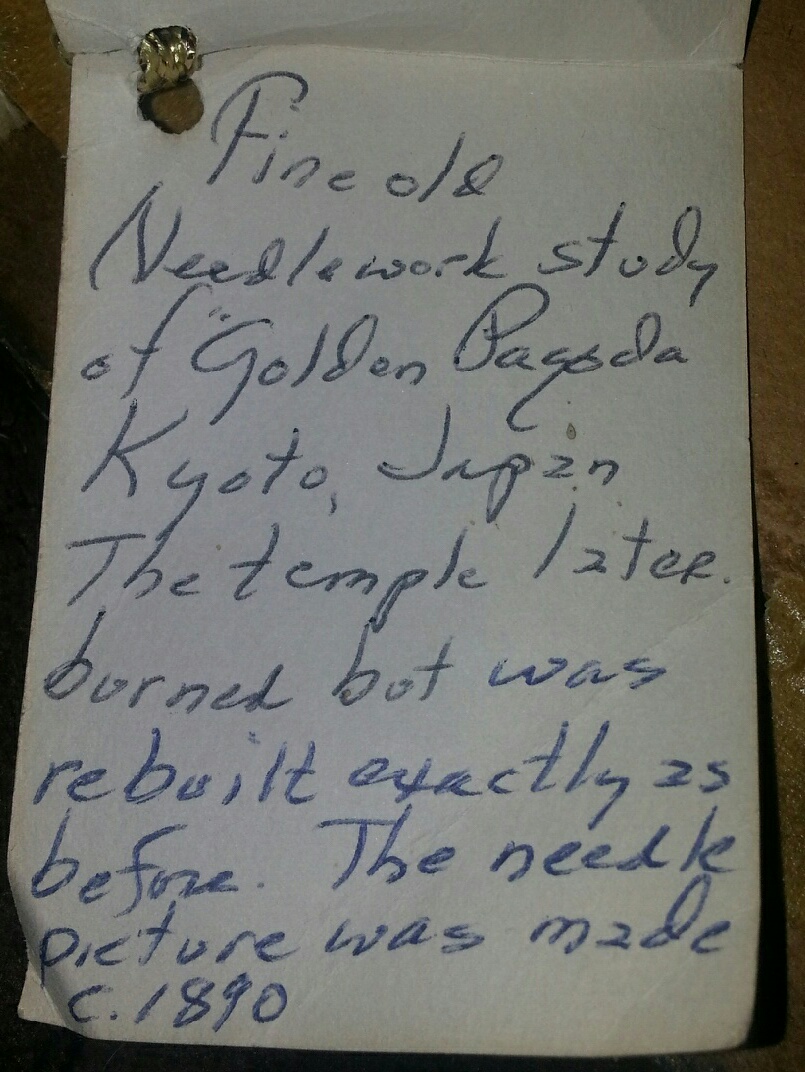 Fine old
Needlework study
of "Golden Pagoda
Kyoto, Japan
The temple later
burned but was
rebuilt exactly as
before. The needle
picture was made
c. 1890